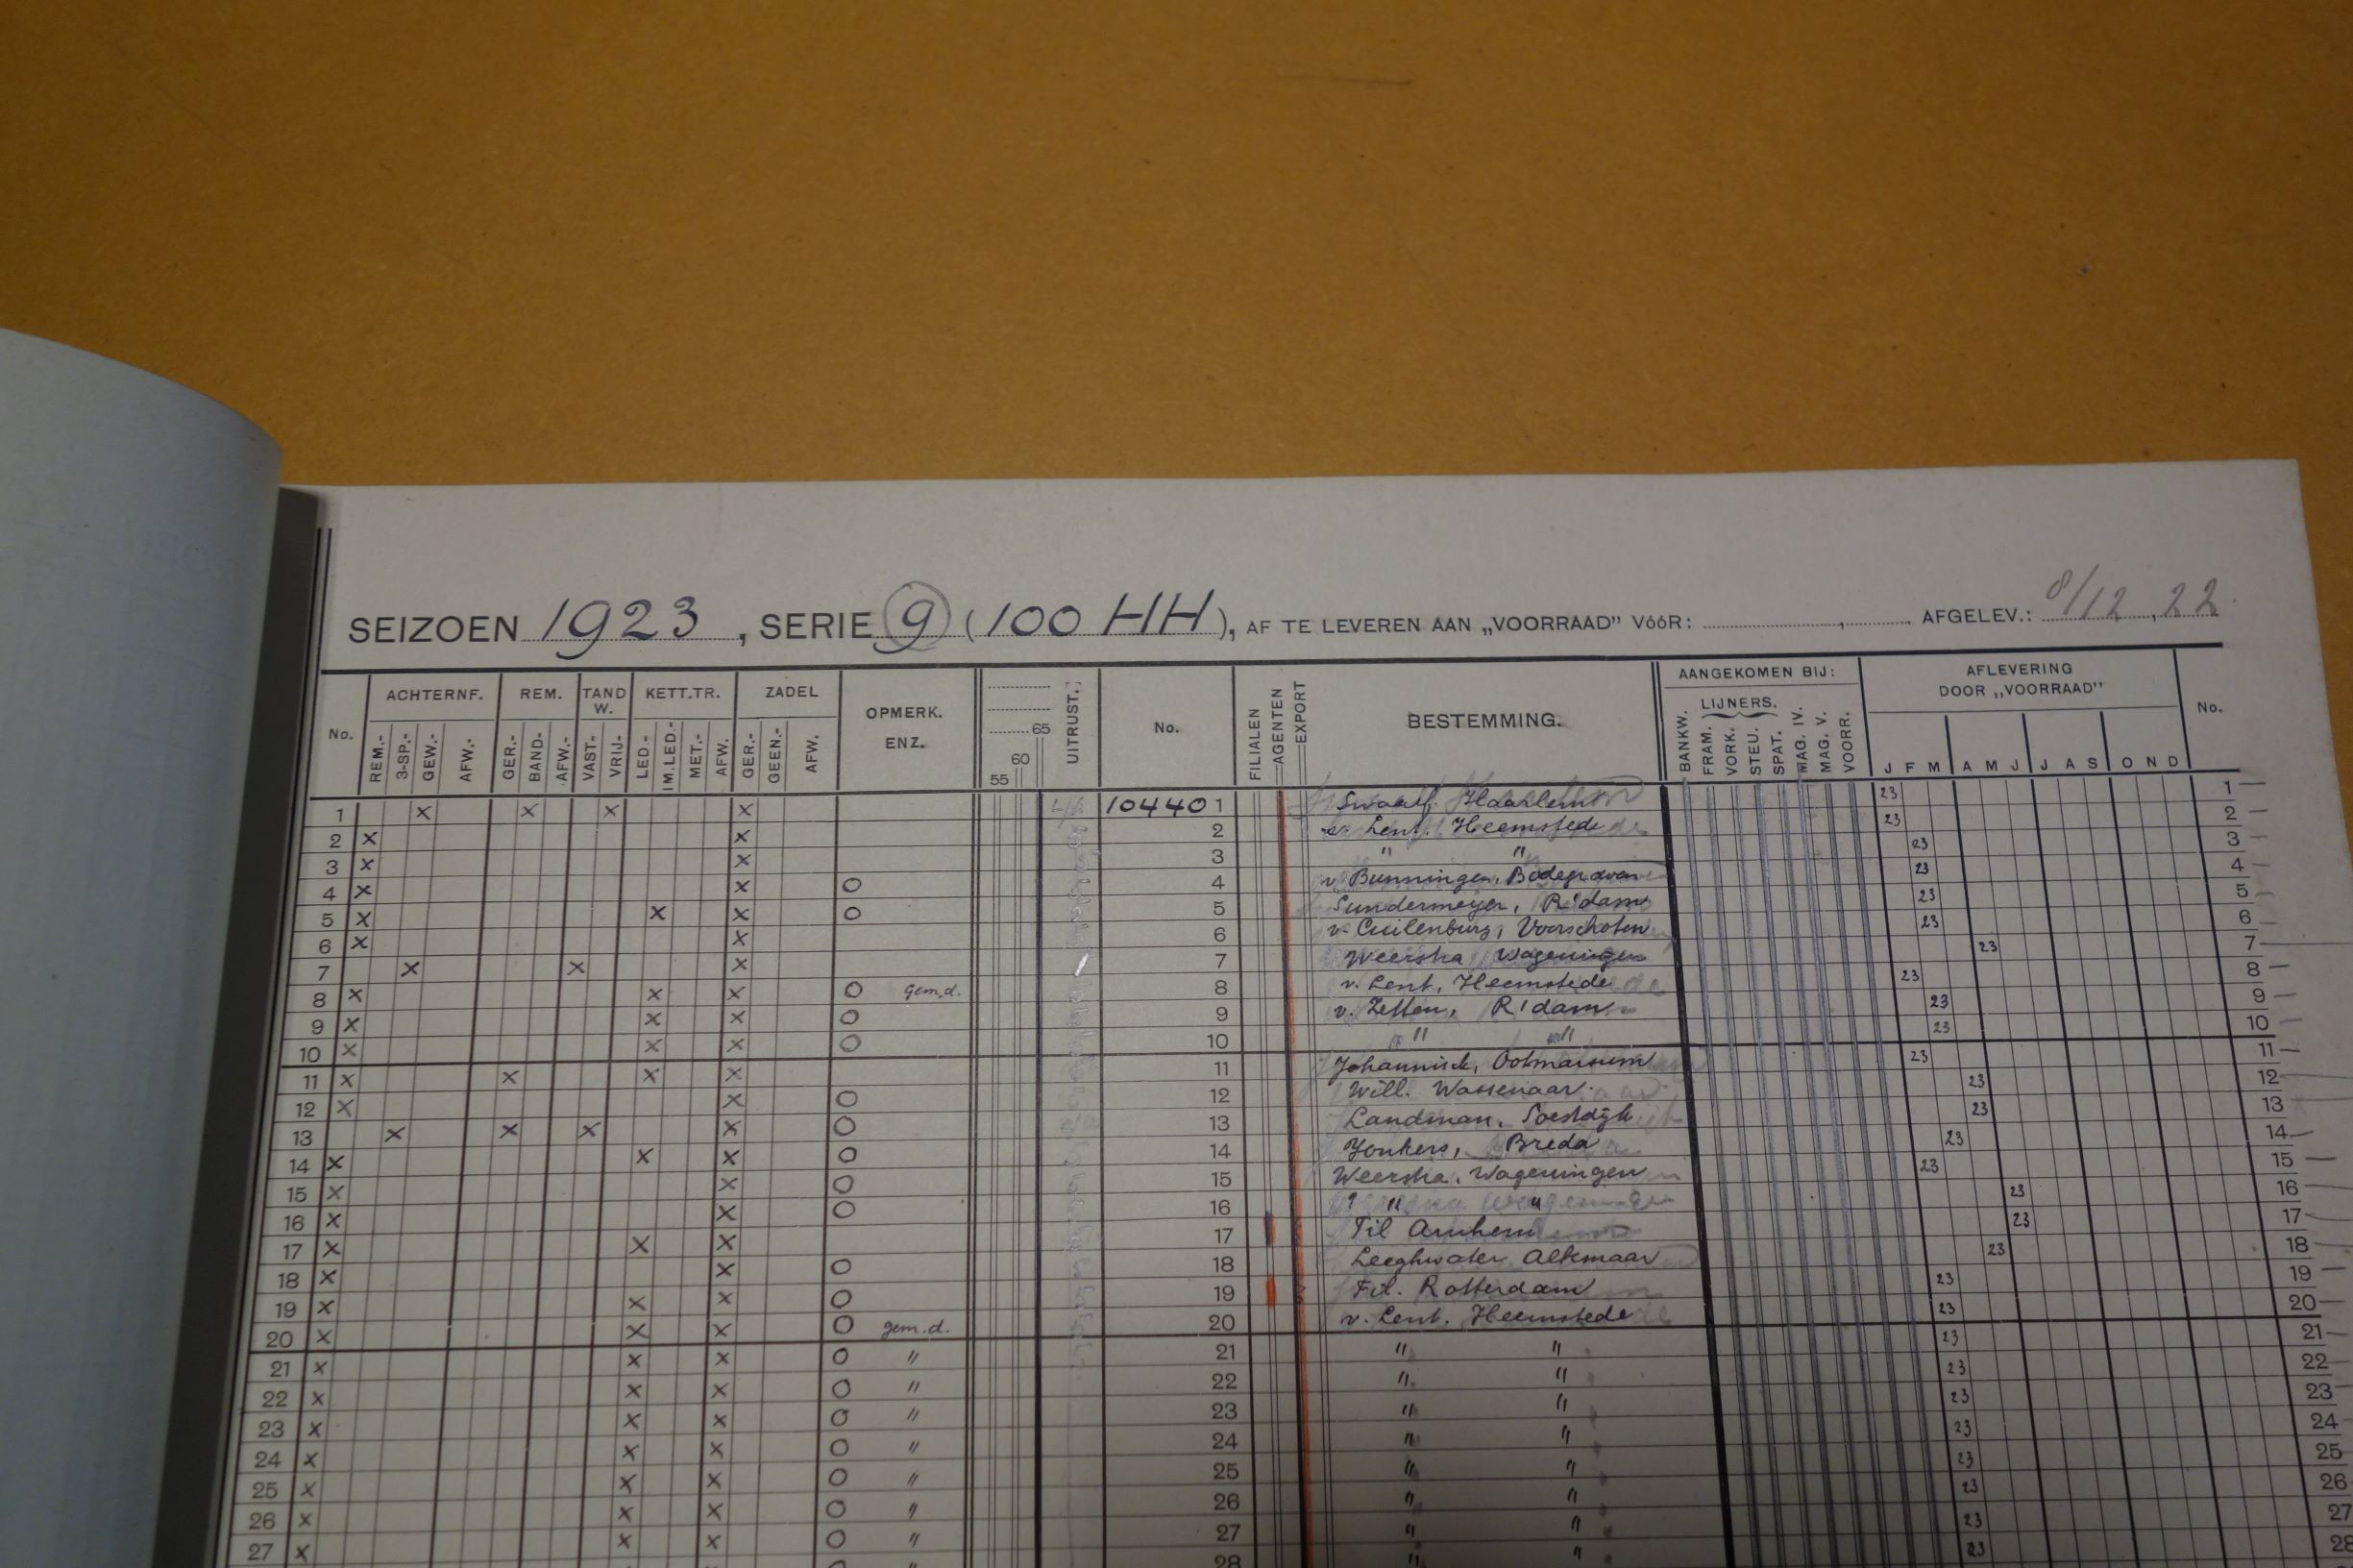 SEIZOEN 1923, SERIE 9 (100 HH), AF TE LEVEREN AAN „VOORRAAD” VÓÓR: ............, ........ AFGELEV.: 8/12, 22
No. ACHTERNF. REM. TAND W. KETT.TR. ZADEL OPMERK. ENZ. 65 60 55 UITRUST. No. FILIALEN AGENTEN EXPORT BESTEMMING. AANGEKOMEN BIJ: AFLEVERING DOOR „VOORRAAD” No.
REM.- 3-SP.- GEW.- AFW.- GER.- BAND- AFW.- VAST- VRIJ- LED.- IM.LED.- MET.- AFW. GER.- GEEN.- AFW. BANKW. LIJNERS. FRAM. VORK. STEU. SPAT. MAG. IV. MAG. V. VOORR. J F M A M J J A S O N D
1 X X X X 10440 1 Swaalf. Haarlem 23 1
2 X X 2 v. Lent. Heemstede 23 2
3 X X 3 " " 23 3
4 X X O 4 v. Bunningen, Bodegraven 23 4
5 X X X O 5 Sundermeyer, R'dam 23 5
6 X X 6 v. Cuilenburg, Voorschoten 23 6
7 X X X 7 Weerstra Wageningen 23 7
8 X X X O gem.d. 8 v. Lent, Heemstede 23 8
9 X X X O 9 v. Zetten, R'dam 23 9
10 X X X O 10 " " 23 10
11 X X X X 11 Johannink, Ootmarsum 23 11
12 X X O 12 Will. Wassenaar. 23 12
13 X X X X O 13 Landman, Soestdijk 23 13
14 X X X O 14 Jonkers, Breda 23 14
15 X X O 15 Weerstra, Wageningen 23 15
16 X X O 16 " " 23 16
17 X X X 17 Fil Arnhem 23 17
18 X X O 18 Leeghwater Alkmaar 23 18
19 X X X O 19 Fil. Rotterdam 23 19
20 X X X O gem.d. 20 v. Lent. Heemstede 23 20
21 X X X O " 21 " " 23 21
22 X X X O " 22 " " 23 22
23 X X X O " 23 " " 23 23
24 X X X O " 24 " " 23 24
25 X X X O " 25 " " 23 25
26 X X X O " 26 " " 23 26
27 X X X O " 27 " " 23 27
28 " " 23 28